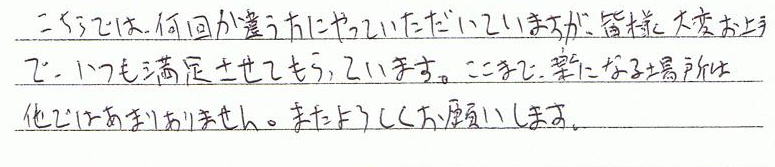 こちらでは、何回か違う方にやっていただいていますが、皆様、大変お上手
で、いつも満足させてもらっています。ここまで、楽になる場所は
他ではあまりありません。またよろしくお願いします。